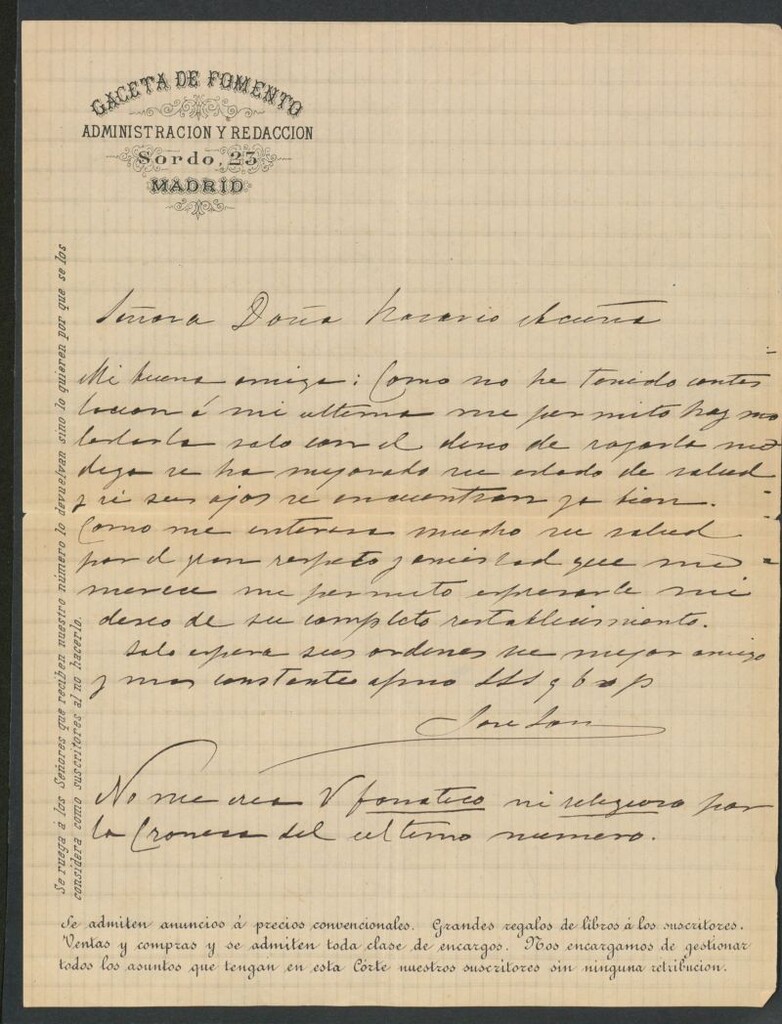 GACETA DE FOMENTO
ADMINISTRACION Y REDACCION
Sordo, 23
MADRID
Se ruega á los Señores que reciben nuestro número lo devuelvan sino lo quieren por que se los
considera como suscritores al no hacerlo.
Señora Doña Rosario Acuña
Mi buena amiga: Como no he tenido contes
tacion á mi ultima me permito hoy mo
lestarla solo con el deseo de rogarla me
diga se ha mejorado su estado de salud
y si sus ojos se encuentran ya bien.
Como me interesa mucho su salud
por el gran respeto y amistad que me
merece me permito expresarle mi
deseo de su completo restablecimiento.
Solo espera sus ordenes su mejor amigo
y mas constante afmo SSS q b s p
Jose
No me crea V fanatico ni religioso por
la Cronica del ultimo numero.
Se admiten anuncios á precios convencionales. Grandes regalos de libros á los suscritores.
Ventas y compras y se admiten toda clase de encargos. Nos encargamos de gestionar
todos los asuntos que tengan en esta Córte nuestros suscritores sin ninguna retribucion.